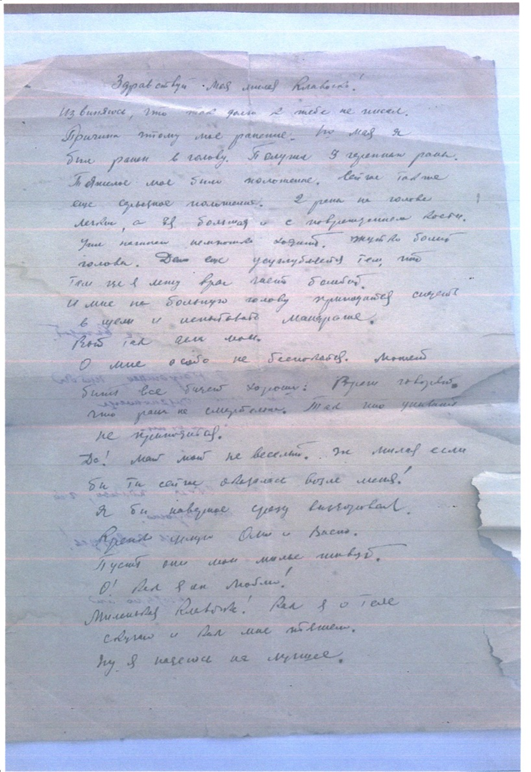 Здравствуй моя милая Клавочка!
Извиняюсь, что так долго я тебе не писал.
Причина этому мое ранение. 10 мая я
был ранен в голову. Получил 3 раны.
Тяжелое мое было положение. Сейчас также
еще серьезное положение. 2 раны на голове
легкии, а большая и с повреждением кости.
Уже начинаю немножко ходить. Жутко болит
голова. Дело еще усугубляется тем, что
там где я лежу враг часто бомбит.
И мне на больную голову приходится сидеть
в щели и испытывать
Вот так дела мои.
О мне особо не беспокойся. Может
быть все будет хорошо. Врачи говорят,
что рана не смертельна. Так что унывать
не приходится!
Да! Май мой не веселый. Эх милая если
бы ты сейчас оказалась возле меня!
Я бы наверное сразу выздоровел.
Крепко целую Олю и Васю.
Пусть они мои милые живут.
О! Как я их люблю!
Миленькая Клавочка! Как я о тебе
скучаю и как мне тяжело.
Ну я надеюсь на лучшее.